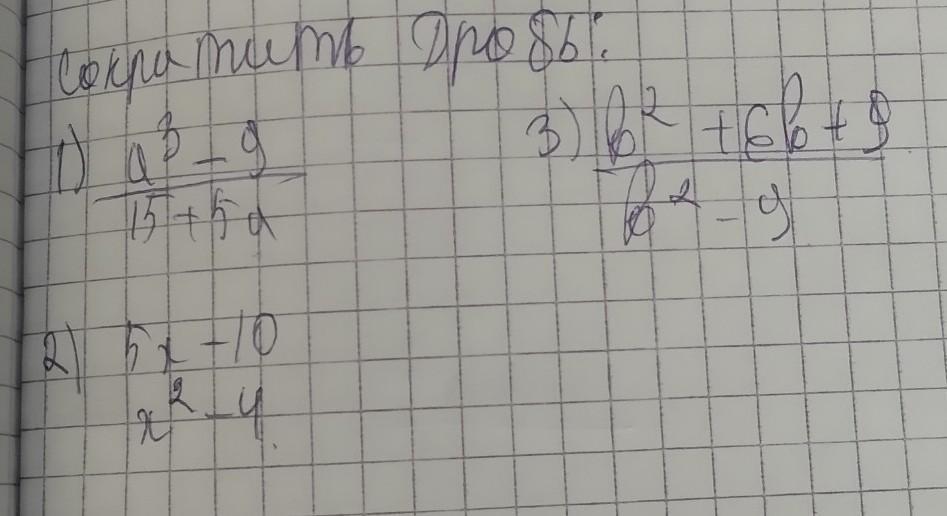 Сократить дробь:
1) a³ - 9 / 15 + 5a
3) b² + 6b + 9 / b² - 9
2) 5x - 10
x² - 4